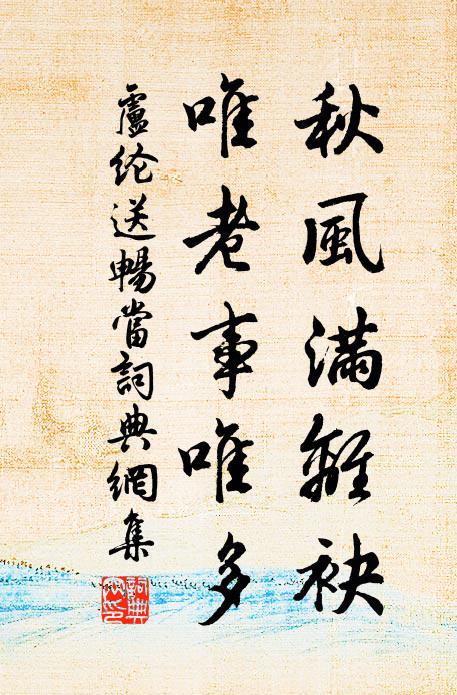 秋風滿離袂
唯老事唯多
盧纶送暢當詞典網集